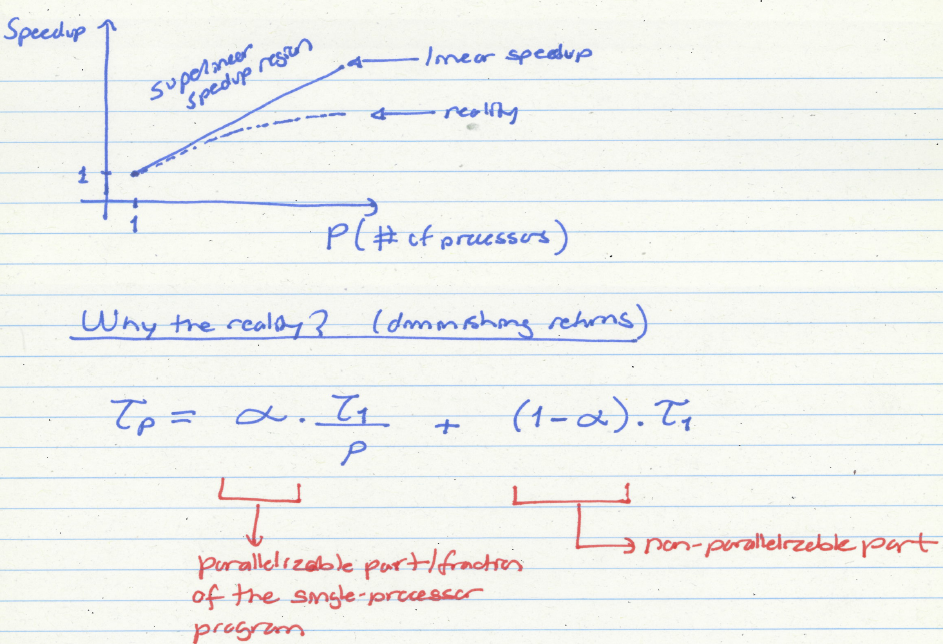 Speedup
superlinear
speedup region
linear speedup
reality
1
1
P (# of processors)
Why the reality? (diminishing returns)
τp = α · τ1/p + (1-α) · τ1
parallelizable part/fraction
of the single-processor
program
non-parallelizable part